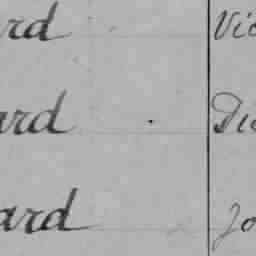 rd Vic
ard Die
ard Jo